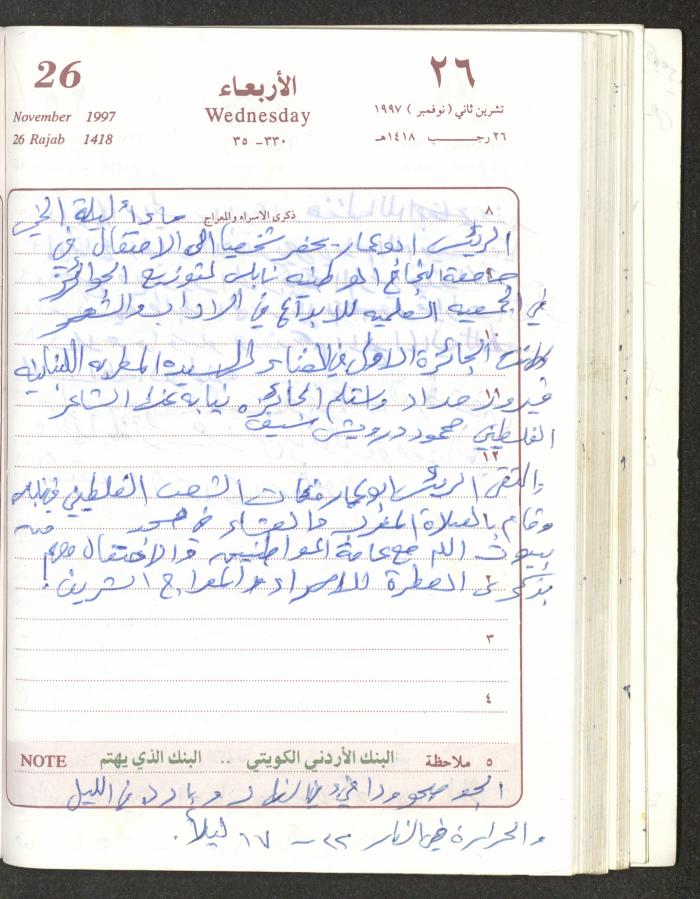 26
November 1997
26 Rajab 1418
الأربعاء
Wednesday
٣٥ - ٣٣٠
٢٦
تشرين ثاني (نوفمبر) ١٩٩٧
٢٦ رجـــب ١٤١٨هـ
٨ ذكرى الاسراء والمعراج مساءاً ليلة الخميس
الرئيس ابو عمار يحضر شخصياً الى الاحتفال في
جامعة النجاح الوطنيه نابلس لتوزيع الجوائز
في الجمعيه العلميه للابداع في الاداب والشعر
١٠
وكانت الجائزة الاولى في الغناء للسيده المطربه اللبنانيه
١١
فيروز حداد واستلم الجائزه نيابه عنها الشاعر
الفلسطيني محمود درويش
١٢
والتقى الرئيس ابو عمار فئات الشعب الفلسطيني في نابلس
وقام بالصلاة المغرب والعشاء في
بيوت الله مع عامة المواطنيين والاحتفال معهم
٢
بذكرى العطرة للاسراء والمعراج الشريف.
٣
٤
٥ ملاحظة البنك الأردني الكويتي .. البنك الذي يهتم NOTE
الجو صحو ودافيء في النهار وبارد في الليل
والحرارة في النهار ٢٢ - ١٧ ليلاً.